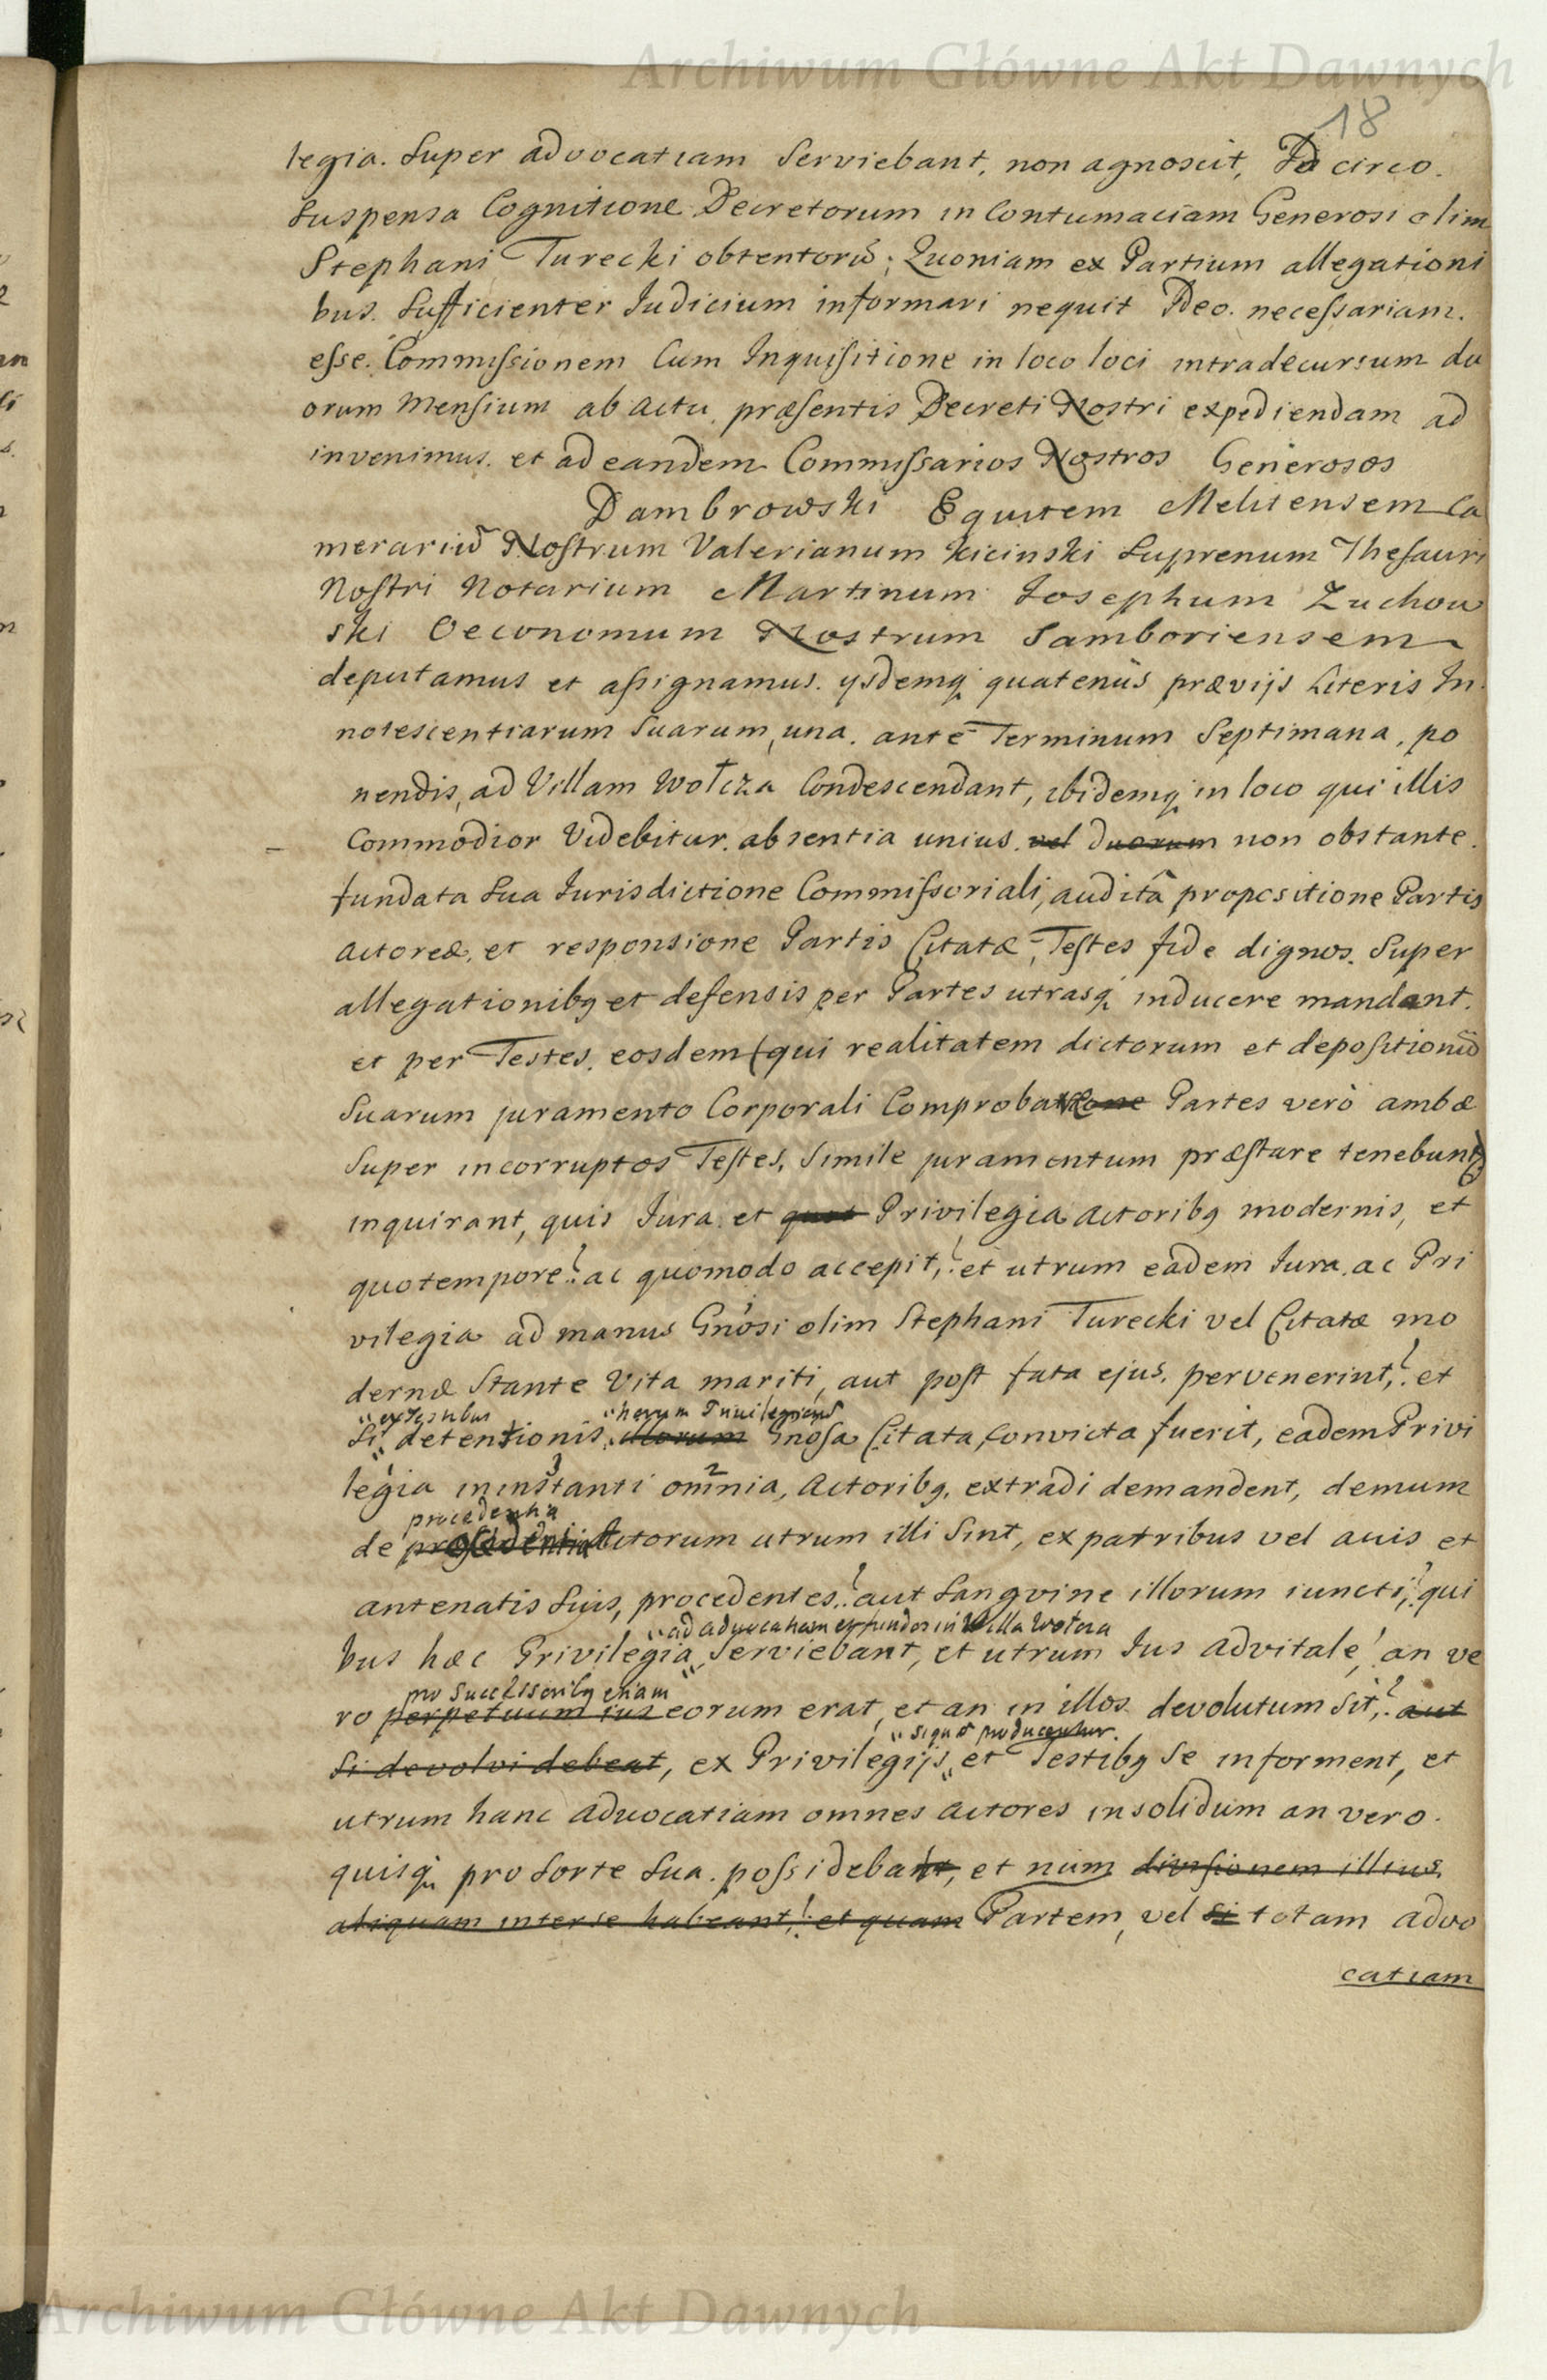 Archiwum Główne Akt Dawnych
18
legia. Super advocatiam Serviebant, non agnoscit, Id circo.
Suspensa Cognitione Decretorum in Contumaciam Generosi olim
Stephani Turecki obtentorũ; Quoniam ex Partium allegationi
bus. Sufficienter Judicium informari nequit Ideo. necessariam.
esse. Commissionem Cum Inquisitione in loco loci intra decursum du
orum Mensium ab actu præsentis Decreti Nostri expediendam ad
invenimus. et ad eandem Commissarios Nostros Generosos
Dambrowski Equitem Melitensem Ca
merariũ Nostrum Valerianum Kicinski Supremum Thesauri
Nostri Notarium Martinum Josephum Zuchow
ski Oeconomum Nostrum Samboriensem
deputamus et assignamus. ysdemq quatenùs prævijs Literis In
notescentiarum Suarum, una. ante Terminum Septimana, po
nendis, ad Villam Wołcza Condescendant, ibidemq in loco qui illis
Commodior Videbitur. absentia unius. vel duorum non obstante.
fundata Sua Jurisdictione Commissoriali, auditâ propositione Partis
Actoreæ, et responsione Partis Citatæ, Testes fide dignos. Super
allegationibq et defensis per Partes utrasq inducere mandant.
et per Testes. eosdem (qui realitatem dictorum et depositionũ
Suarum juramento Corporali Partes verò ambæ
Super incorruptos Testes, Simile juramentum præstare tenebunt)
inquirant, quis Jura et quot Privilegia Actoribq modernis, et
quo tempore? ac quomodo accepit,? et utrum eadem Jura. ac Pri
vilegia ad manus Gnosi olim Stephani Turecki vel Citatæ mo
dernæ Stante Vita mariti, aut post fata ejus. pervenerint,? et
"ex Testibus "horum Privilegiorũ
Si" detentionis, illorum Gnosa Citata, Convicta fuerit, eadem Privi
legia in instanti omnia, Actoribq. extradi demandent, demum
procedentia
de Actorum utrum illi Sint, ex patribus vel avis et
antenatis Suis, procedentes.? aut Sangvine illorum iuncti,? qui
"ad advocatiam et fundos in Villa Wołcza
bus hæc Privilegia" Serviebant, et utrum Jus advitale! an ve
pro Successoribq etiam
ro perpetuum ius eorum erat, et an in illos devolutum Sit,? aut
"si quæ producentur.
Si devolvi debeat, ex Privilegijs" et Testibq Se informent, et
utrum hanc advocatiam omnes Actores in solidum an vero.
quisq pro Sorte Sua. possidebant, et num divisionem illius
aliquam inter se habeant,! et quam Partem, vel si totam advo
catiam
Archiwum Główne Akt Dawnych